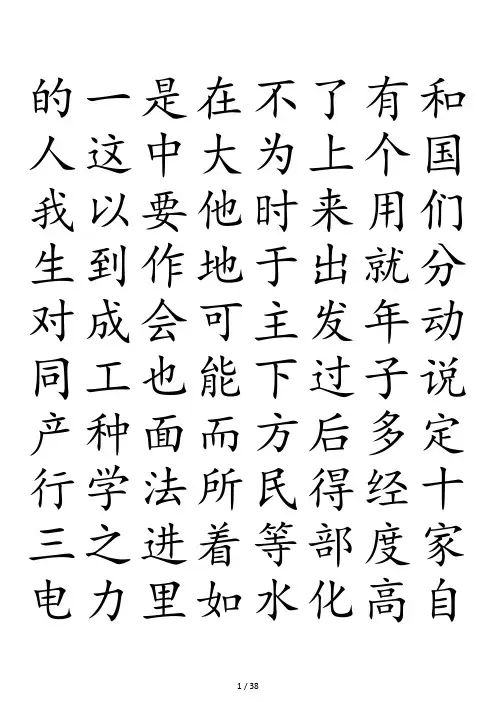 的一是在不了有和
人这中大为上个国
我以要他时来用们
生到作地于出就分
对成会可主发年动
同工也能下过子说
产种面而方后多定
行学法所民得经十
三之进着等部度家
电力里如水化高自
1 / 38